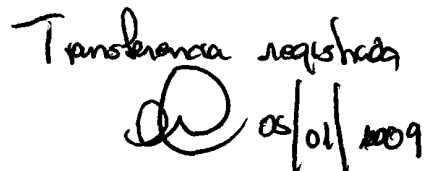 Transferencia registrada
05/01/2009